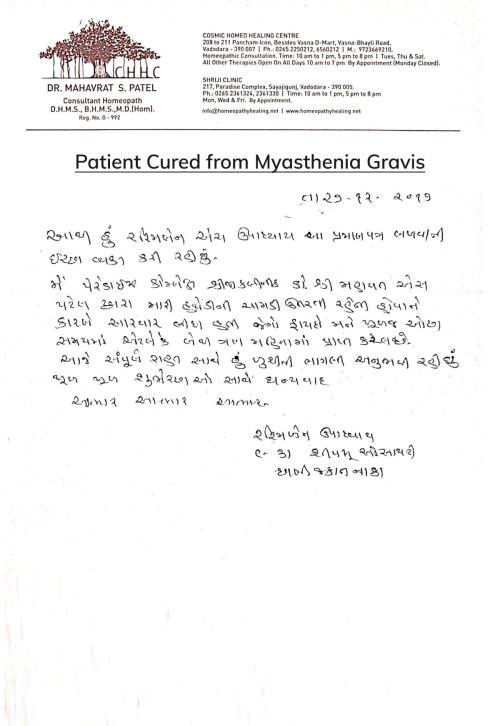 COSMIC HOMEO HEALING CENTRE
208 to 211 Pancham Icon, Besides Vasna D-Mart, Vasna-Bhayli Road,
Vadodara - 390 007 | Ph.: 0265 2250212, 6560212 | M.: 9723669210,
Homeopathic Consultation. Time: 10 am to 1 pm, 5 pm to 8 pm | Tues, Thu & Sat.
All Other Therapies Open On All Days 10 am to 7 pm By Appointment (Monday Closed).
CHHC
DR. MAHAVRAT S. PATEL
Consultant Homeopath
D.H.M.S., B.H.M.S.,M.D.(Hom).
Reg. No. G - 992
SHRIJI CLINIC
217, Paradise Complex, Sayajigunj, Vadodara - 390 005.
Ph.: 0265 2361324, 2361330 | Time: 10 am to 1 pm, 5 pm to 8 pm
Mon, Wed & Fri. By Appointment.
info@homeopathyhealing.net | www.homeopathyhealing.net
Patient Cured from Myasthenia Gravis
તા ૨૭-૧૨-૨૦૧૭
આથી હું રશ્મિબેન એસ ઉપાધ્યાય આ પ્રમાણપત્ર લખવાની
ઈચ્છા વ્યક્ત કરી રહી છું.
મેં પેરેડાઈઝ કોમ્પલેક્ષ શ્રીજી ક્લીનીક ડો શ્રી મહાવ્રત એસ
પટેલ દ્વારા મારી હથેળીની ચામડી ઉતરતી રહેતી હોવાને
કારણે સારવાર લીધી હતી જેનો ફાયદો મને ખુબજ ઓછા
સમયમાં એટલે કે બેથી ત્રણ મહિનામાં પ્રાપ્ત કરેલ છે.
આજે સંપૂર્ણ રાહત સાથે હું ખુશીની લાગણી અનુભવી રહી છું
ખુબ ખુબ શુભેચ્છાઓ સાથે ધન્યવાદ
આભાર આભાર આભાર
રશ્મિબેન ઉપાધ્યાય
જકાત નાકા